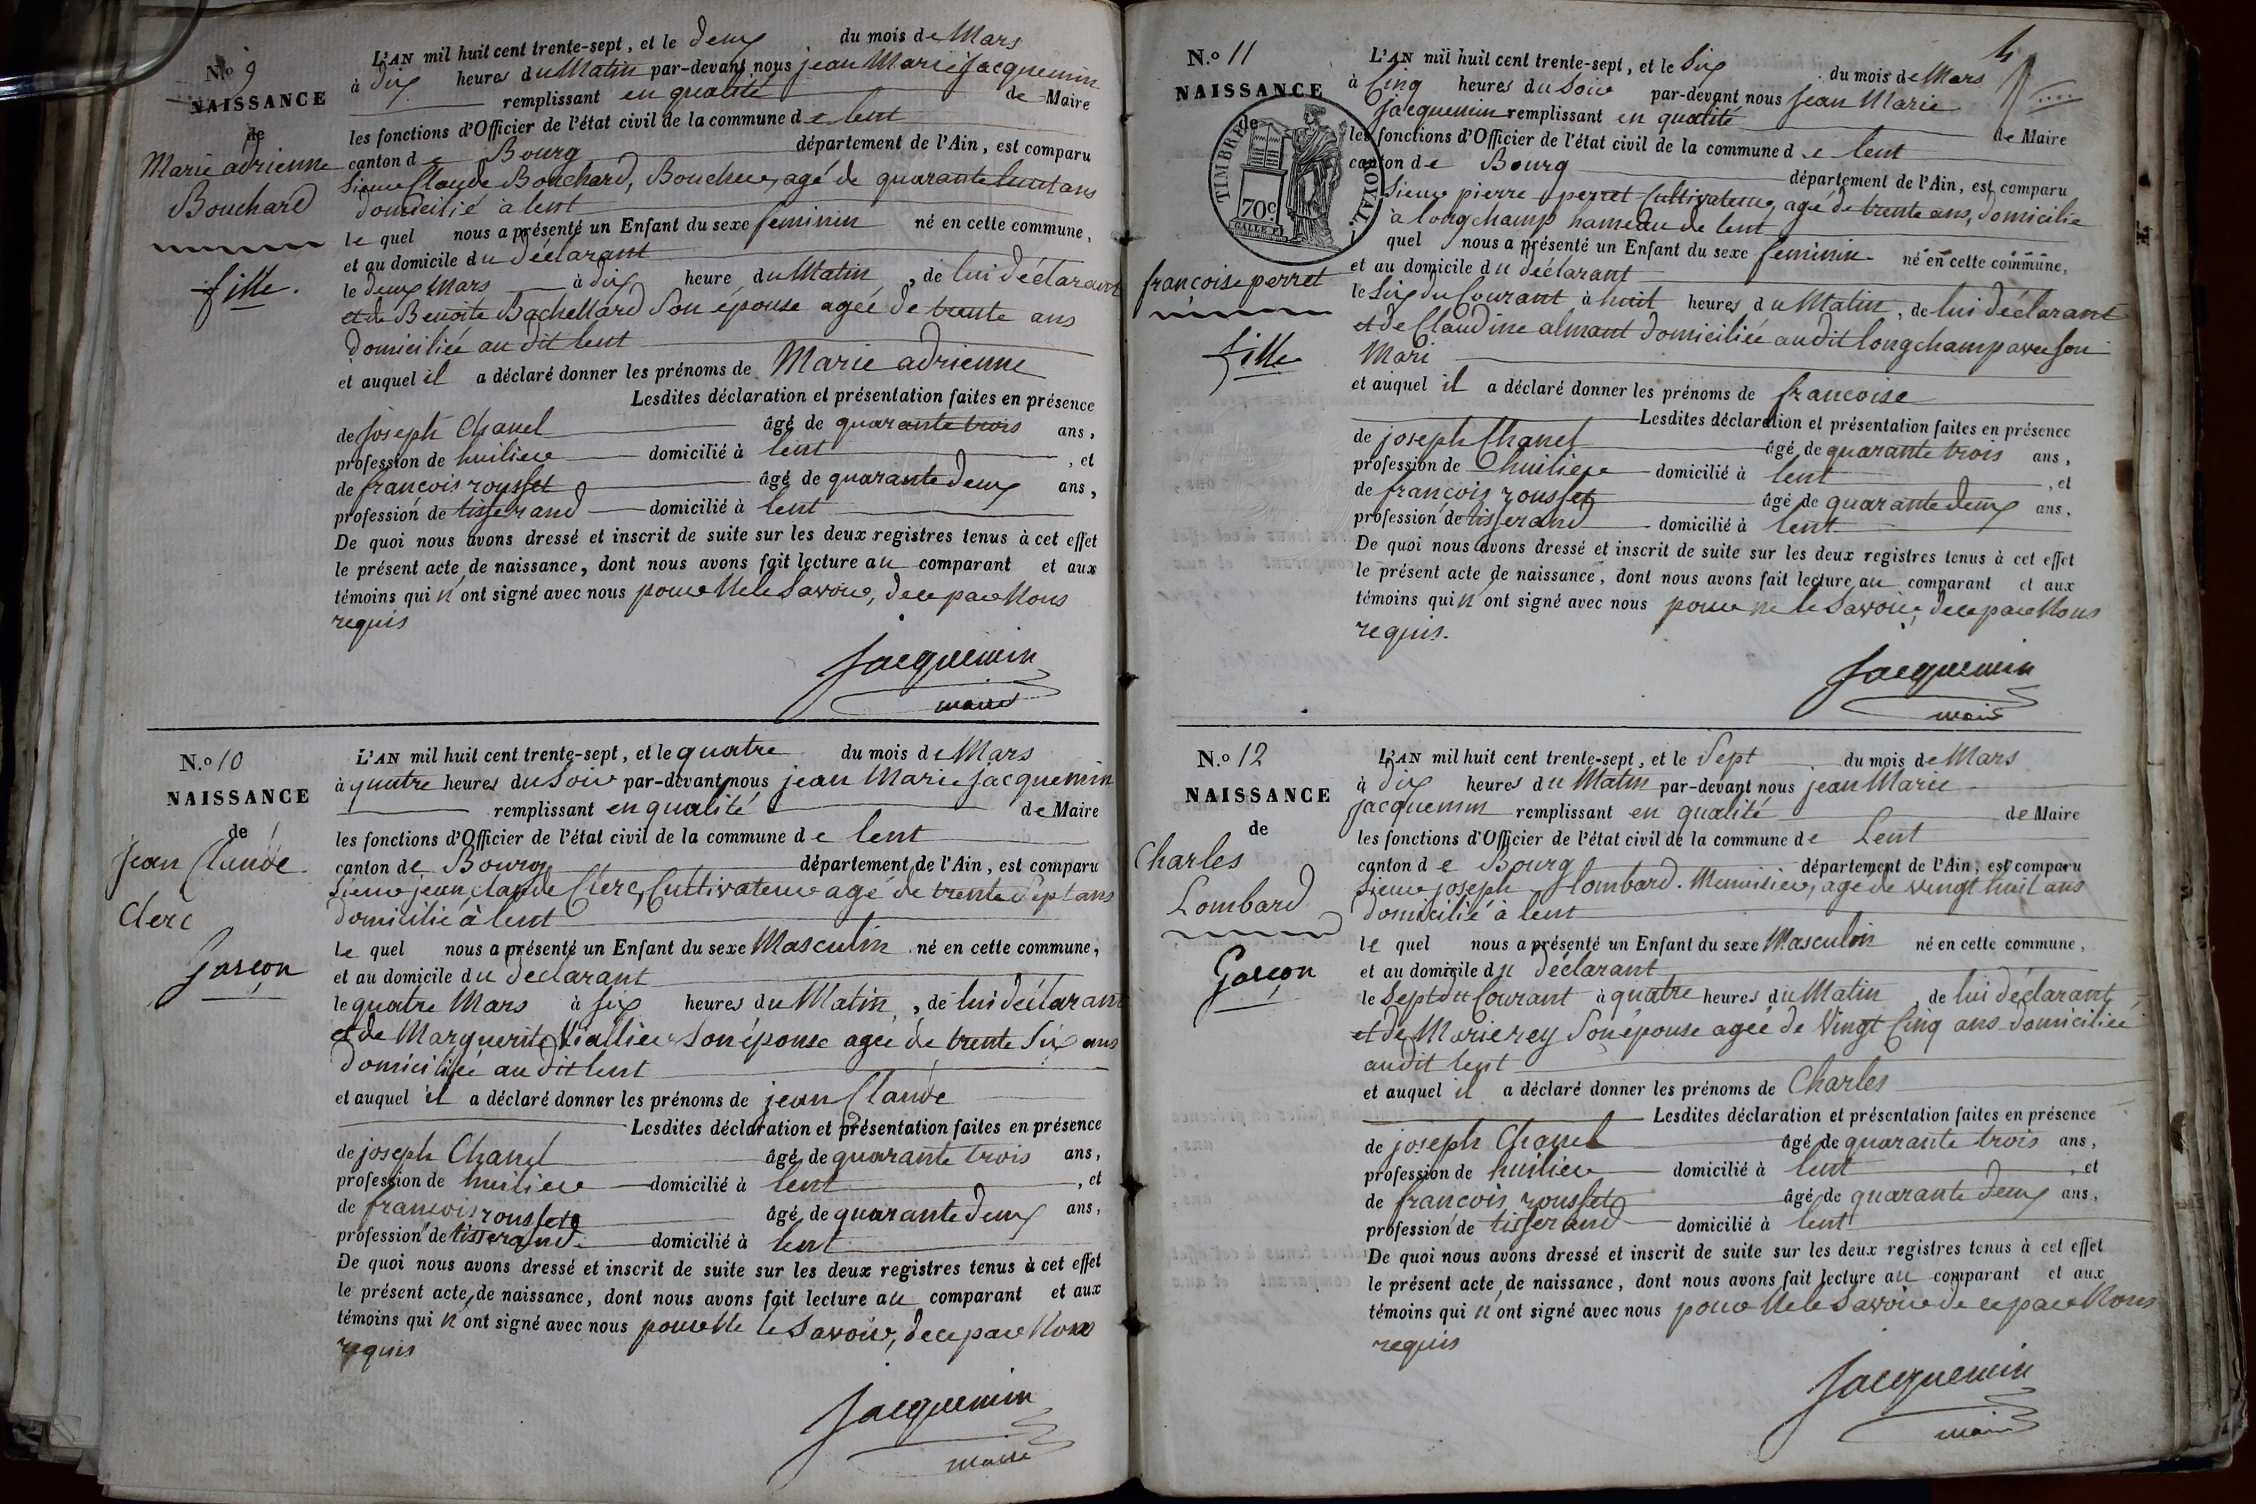 N.o 9
NAISSANCE
de
Marie adrienne
Bouchard
fille.
L'AN mil huit cent trente-sept, et le deux du mois de Mars
à dix heures du Matin par-devant nous jean Marie Jacquemin
remplissant en qualité de Maire
les fonctions d'Officier de l'état civil de la commune de lent
canton de Bourg département de l'Ain, est comparu
Sieur Claude Bouchard, Boucher, agé de quarante huit ans
domicilié à lent
le quel nous a présenté un Enfant du sexe feminin né en cette commune,
et au domicile du déclarant
le deux Mars à dix heure du Matin, de lui déclarant
et de Benoite Bachellard Son épouse agée de trente ans
domiciliée au dit lent
et auquel il a déclaré donner les prénoms de Marie adrienne
Lesdites déclaration et présentation faites en présence
de joseph Chanel âgé de quarante trois ans,
profession de huilier domicilié à lent, et
de francois rousset âgé de quarante deux ans,
profession de tisserand domicilié à lent
De quoi nous avons dressé et inscrit de suite sur les deux registres tenus à cet effet
le présent acte de naissance, dont nous avons fait lecture au comparant et aux
témoins qui n'ont signé avec nous pour Ne le Savoir, de ce par Nous
requis
Jacquemin
maire
N.o 10
NAISSANCE
de
Jean Claude
Clerc
Garçon
L'AN mil huit cent trente-sept, et le quatre du mois de Mars
à quatre heures du Soir par-devant nous jean Marie Jacquemin
remplissant en qualité de Maire
les fonctions d'Officier de l'état civil de la commune de lent
canton de Bourg département de l'Ain, est comparu
Sieur jean claude Clerc, Cultivateur agé de trente Sept ans
domicilié à lent
le quel nous a présenté un Enfant du sexe Masculin né en cette commune,
et au domicile du déclarant
le quatre Mars à Six heures du Matin, de lui déclarant
et de Marguerite Viallier Son épouse agée de trente Six ans
domiciliée au dit lent
et auquel il a déclaré donner les prénoms de jean Claude
Lesdites déclaration et présentation faites en présence
de joseph Chanel âgé de quarante trois ans,
profession de huilier domicilié à lent, et
de francois rousset âgé de quarante deux ans,
profession de tisserand domicilié à lent
De quoi nous avons dressé et inscrit de suite sur les deux registres tenus à cet effet
le présent acte de naissance, dont nous avons fait lecture au comparant et aux
témoins qui n'ont signé avec nous pour Ne le Savoir, de ce par Nous
requis
Jacquemin
maire
4
N.o 11
NAISSANCE
de
TIMBRE ROYAL
70c.
francoise perret
fille
L'AN mil huit cent trente-sept, et le Six du mois de Mars
à Cinq heures du Soir par-devant nous Jean Marie
Jacquemin remplissant en qualité de Maire
les fonctions d'Officier de l'état civil de la commune de lent
canton de Bourg département de l'Ain, est comparu
Sieur pierre perret Cultivateur, agé de trente ans, domicilié
à longchamp hameau de lent
quel nous a présenté un Enfant du sexe feminin né en cette commune,
et au domicile du déclarant
le Six du Courant à huit heures du Matin, de lui déclarant
et de Claudine almant domiciliée au dit longchamp avec Son
Mari
et auquel il a déclaré donner les prénoms de francoise
Lesdites déclaration et présentation faites en présence
de joseph Chanel âgé de quarante trois ans,
profession de huilier domicilié à lent, et
de françois rousset âgé de quarante deux ans,
profession de tisserand domicilié à lent
De quoi nous avons dressé et inscrit de suite sur les deux registres tenus à cet effet
le présent acte de naissance, dont nous avons fait lecture au comparant et aux
témoins qui n'ont signé avec nous pour ne le Savoir, de ce par Nous
requis.
Jacquemin
maire
N.o 12
NAISSANCE
de
Charles
Lombard
Garçon
L'AN mil huit cent trente-sept, et le Sept du mois de Mars
à dix heures du Matin par-devant nous jean Marie
Jacquemin remplissant en qualité de Maire
les fonctions d'Officier de l'état civil de la commune de Lent
canton de Bourg département de l'Ain, est comparu
Sieur joseph lombard. Menuisier, agé de vingt huit ans
domicilié à lent
le quel nous a présenté un Enfant du sexe Masculin né en cette commune,
et au domicile du déclarant
le Sept du Courant à quatre heures du Matin, de lui déclarant
et de Marie rey Son épouse agée de Vingt Cinq ans domiciliée
au dit lent
et auquel il a déclaré donner les prénoms de Charles
Lesdites déclaration et présentation faites en présence
de joseph Chanel âgé de quarante trois ans,
profession de huilier domicilié à lent, et
de françois rousset âgé de quarante deux ans,
profession de tisserand domicilié à lent
De quoi nous avons dressé et inscrit de suite sur les deux registres tenus à cet effet
le présent acte de naissance, dont nous avons fait lecture au comparant et aux
témoins qui n'ont signé avec nous pour Ne le Savoir de ce par Nous
requis
Jacquemin
maire